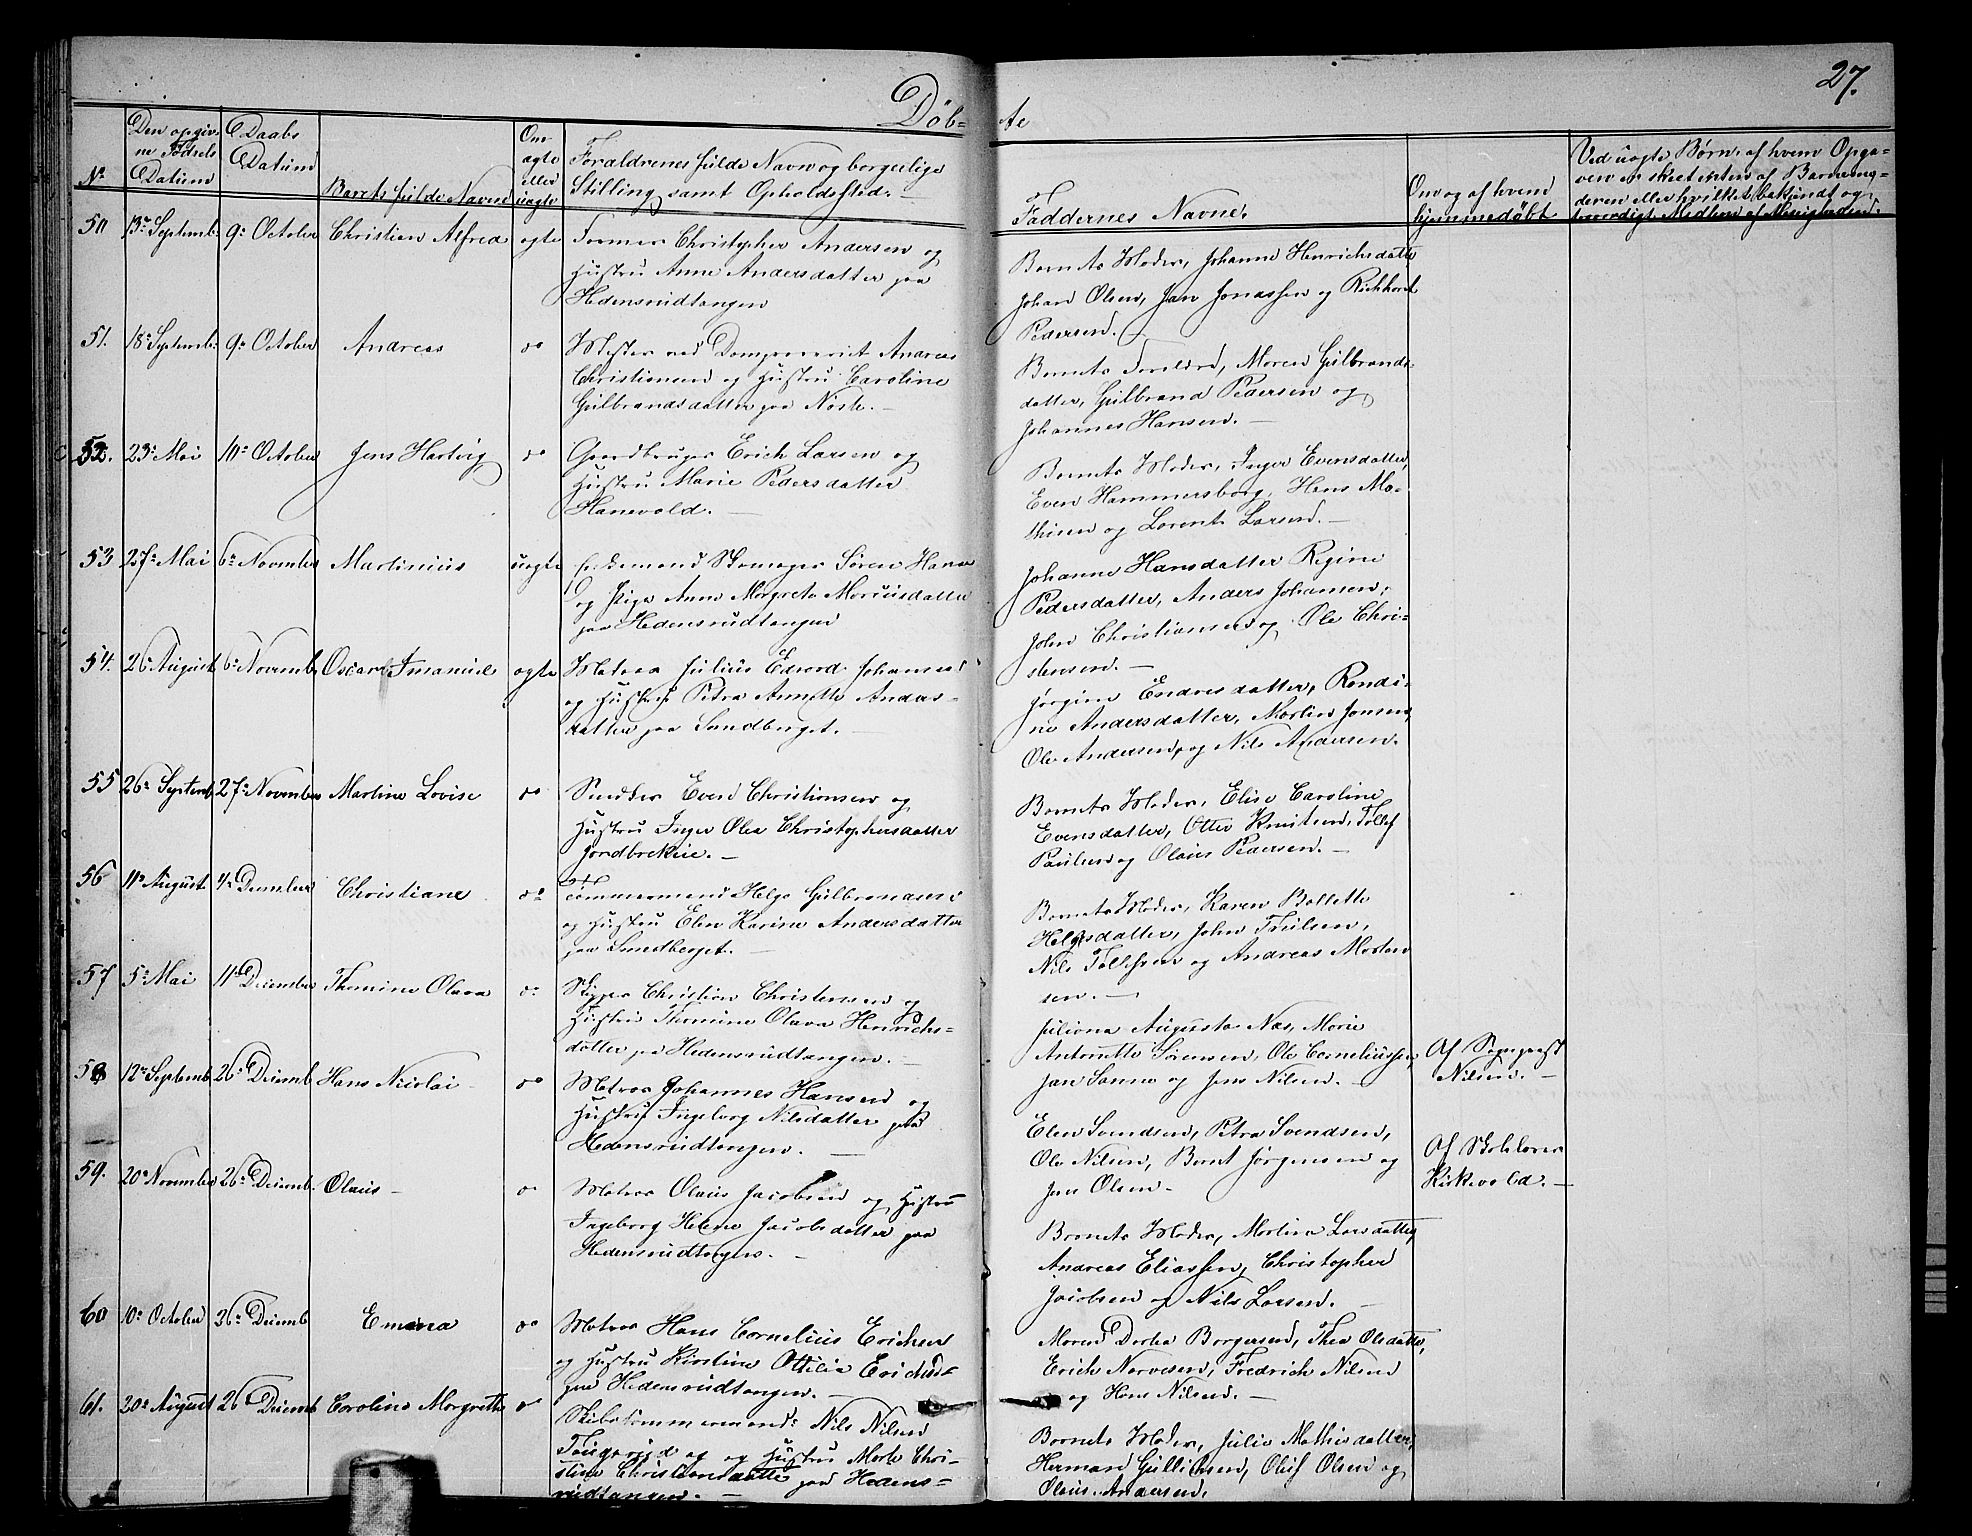 27.
Døb-
te
No
Den opgiv-
ne Fødsels
Datum
Daabs
Datum
Barnets fulde Navne
Om
ægte
eller
uægte
Forældrenes fulde Navn og borgerlige
Stilling samt Opholdssted.
Faddernes Navne.
Om og af hvem
hjemmedøbt
Ved uægte Børn, af hvem Opga-
50 13de Septemb. 9de October Christian Alfred ægte
Christopher Andersen og
Hustru Anne Andersdatter paa
Hedensrudtangen
Barnets Moder, Johanne Henrichsdatter
Johan Olsen, Jan Jonassen og
Pedersen.
51. 18de Septemb. 9de October Andreas do
Andreas
Christiansen og Hustru Caroline
Gulbrandsdatter paa
Barnets Maren Gulbrands-
datter, Gulbrand Pedersen og
Johannes Hansen.
52. 23de Mai 10de October Jens Hartvig do
Gaardbruger Erich Larsen og
Hustru Marie Pedersdatter
Hanevold.
Barnets Moder, Inger Evensdatter,
Even Hammersborg, Hans Ma-
thisen og Lorents Larsen.
53 27de Mai 6te November Martinius uægte
Søren Hansen
og Pige Anne Margrete Mariusdatter
paa Hedensrudtangen
Johanne Hansdatter Regine
Pedersdatter, Anders Johansen,
John Christiansen og Ole Chri-
stensen.
54. 26de August 6te Novemb. Oscar Imanuel ægte
Matros Julius Edvard Johansen
og Hustru Petra Annette Anders-
datter paa Sandberget.
Jørgine Endresdatter, Randi-
ne Andersdatter, Martin Jensen,
Ole Andersen, og Nils Andersen.
55 26de Septemb. 27de November Martine Lovise do
Even Christiansen og
Hustru Inger Olea Christophersdatter
Jordbrekke.
Barnets Moder, Elise Caroline
Evensdatter, Otter Knutsen, Tollef
Paulsen og Olaus Pedersen.
56 11te August 4de December Christiane do
Tømmermand Helge Gulbrandsen
og Hustru Elen Karine Andersdatter
paa Smedberget.
Barnets Moder, Karen Bollette
Helgesdatter, John Trulsen,
Nils Tollefsen og Andreas Morten
sen.
57 5te Mai 11te December Thomine Olava do
Skipper Christian Christensen og
Hustru Thomine Olava Henrichs-
datter paa Hedensrudtangen.
Juliana Augusta Næs, Marie
Antonette Sørensen, Ole Corneliussen,
Jan Sanne og Jens Nilsen.
Af Sogneprest
Nilsen.
58 12te Septemb. 26de Decemb. Hans Nicolai do
Matros Johannes Hansen og
Hustru Ingeborg Nilsdatter paa
Hedensrudtangen.
Elen Svendsen, Petra Svendsen,
Ole Nilsen, Bernt Jørgensen og
Jens Olsen.
Af Skolelærer
Kirkevold.
59. 20de November 26de Decemb. Olaus do
Matros Olaus Jacobsen og Hustru
Ingeborg Helene Jacobsdatter paa
Hedensrudtangen.
Barnets Moder, Martine Larsdatter,
Andreas Eliassen, Christopher
Jacobsen og Nils Larsen.
60 10de October 26de Decemb. Emma do
Matros Hans Cornelius Erichsen
og Hustru Kirstine Ottilia
paa Hedensrudtangen.
Maren Dorthea Borgersen, Thea Olsdatter,
Erich Narvesen, Fredrich Nilsen
og Hans Nilsen.
61. 20de August 26de Decemb. Caroline Margrethe do
Skibstømmermand Nils Nilsen
og Hustru Marte Chri-
stine Christiansdatter paa Hedens-
rudtangen.
Barnets Moder, Julie Mathisdatter,
Herman Gullichsen, Oluf Olsen og
Olaus Andersen.